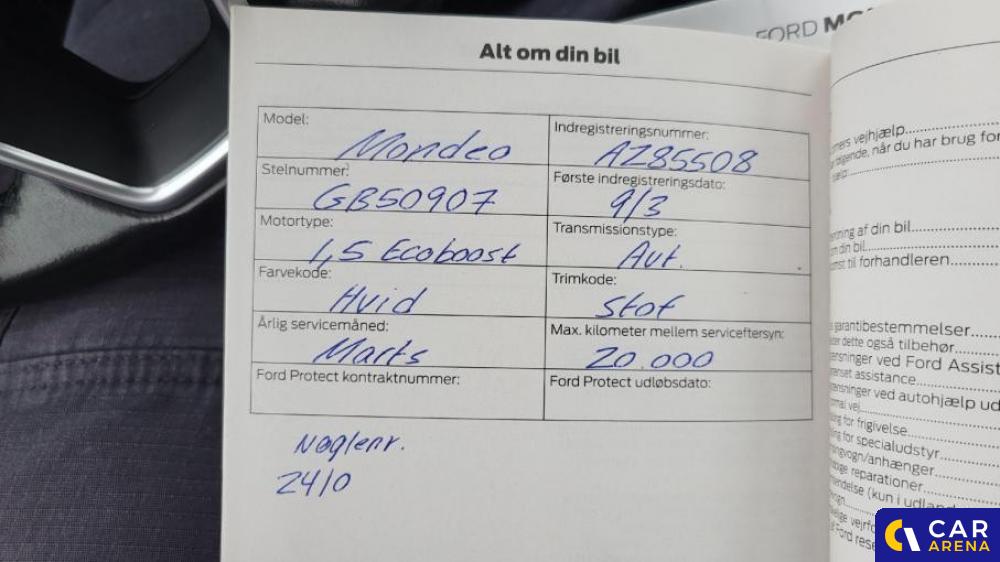 FORD
Alt om din bil
Model:
Mondeo
Indregistreringsnummer:
AZ85508
Stelnummer:
GB50907
Første indregistreringsdato:
9/3
Motortype:
1,5 Ecoboost
Transmissionstype:
Aut.
Farvekode:
Hvid
Trimkode:
Stof
Årlig servicemåned:
Marts
Max. kilometer mellem serviceftersyn:
20.000
Ford Protect kontraktnummer:
Ford Protect udløbsdato:
Nøglenr.
2410
vejhjælp
følgende, når du har brug for
af din bil
din bil
til forhandleren
garantibestemmelser
dette også tilbehør
ved Ford Assist
assistance
ved autohjælp ud
vej
for frigivelse
for specialudstyr
/anhænger
reparationer
(kun i udland
Ford
CAR
ARENA